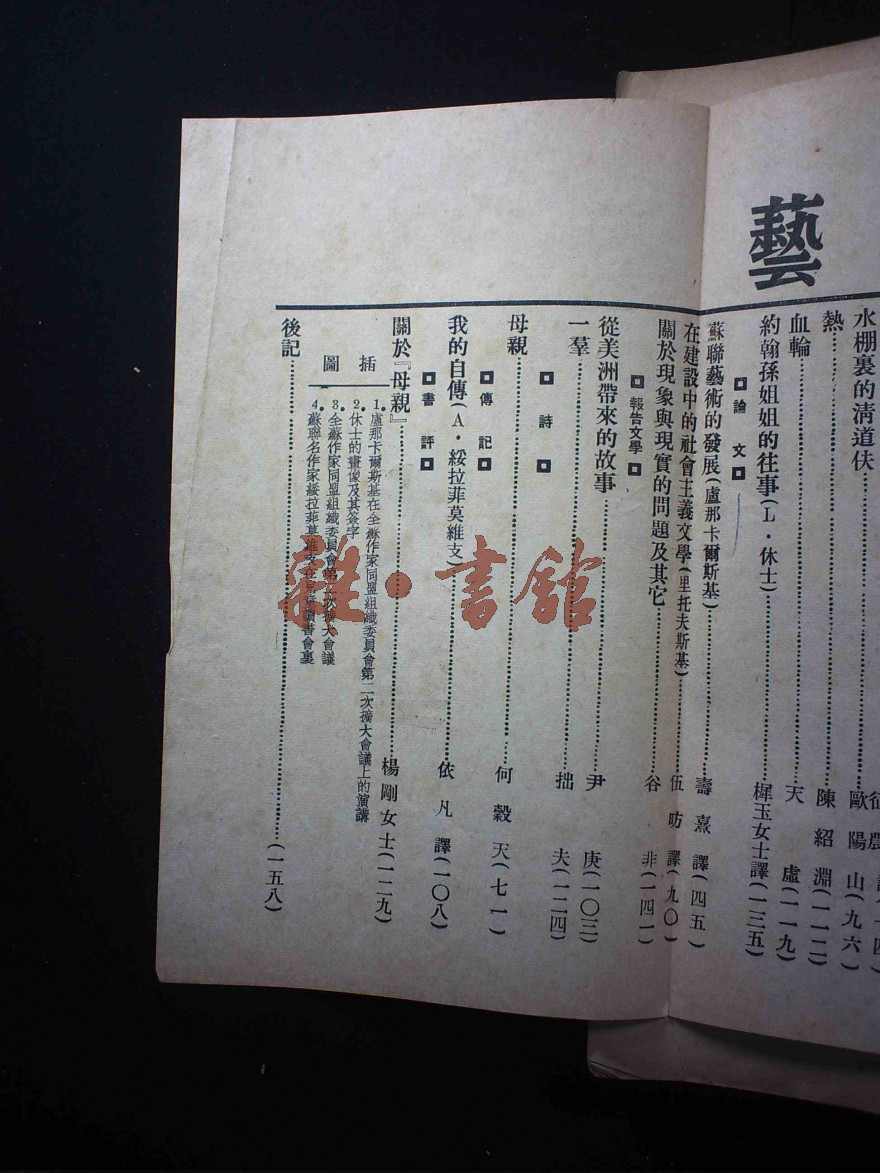 藝
水棚裏的清道伕 歐陽山(九六)
熱 陳紹淵(一一二)
血輪 天虛(一一九)
約翰孫姐姐的往事(L·休士) 樨玉女士譯(一三五)
論文
蘇聯藝術的發展(盧那卡爾斯基) 壽熹譯(四五)
在建設中的社會主義文學(里托夫斯基) 伍昉譯(九〇)
關於現象與現實的問題及其它 谷非(一四一)
報告文學
從美洲帶來的故事 尹庚(一〇三)
一羣 拙夫(一二四)
詩
母親 何穀天(七一)
傳記
我的自傳(A·綏拉菲莫維支) 依凡譯(一〇八)
書評
關於『母親』 楊剛女士(一二九)
插圖
1.盧那卡爾斯基在全蘇作家同盟組織委員會第二次擴大會議上的演講
2.休士的畫像及其簽字
3.全蘇作家同盟組織委員會第二次擴大會議
4.蘇聯名作家綏拉菲莫維支在兒童讀書會裏
後記 (一五八)
雜·書館